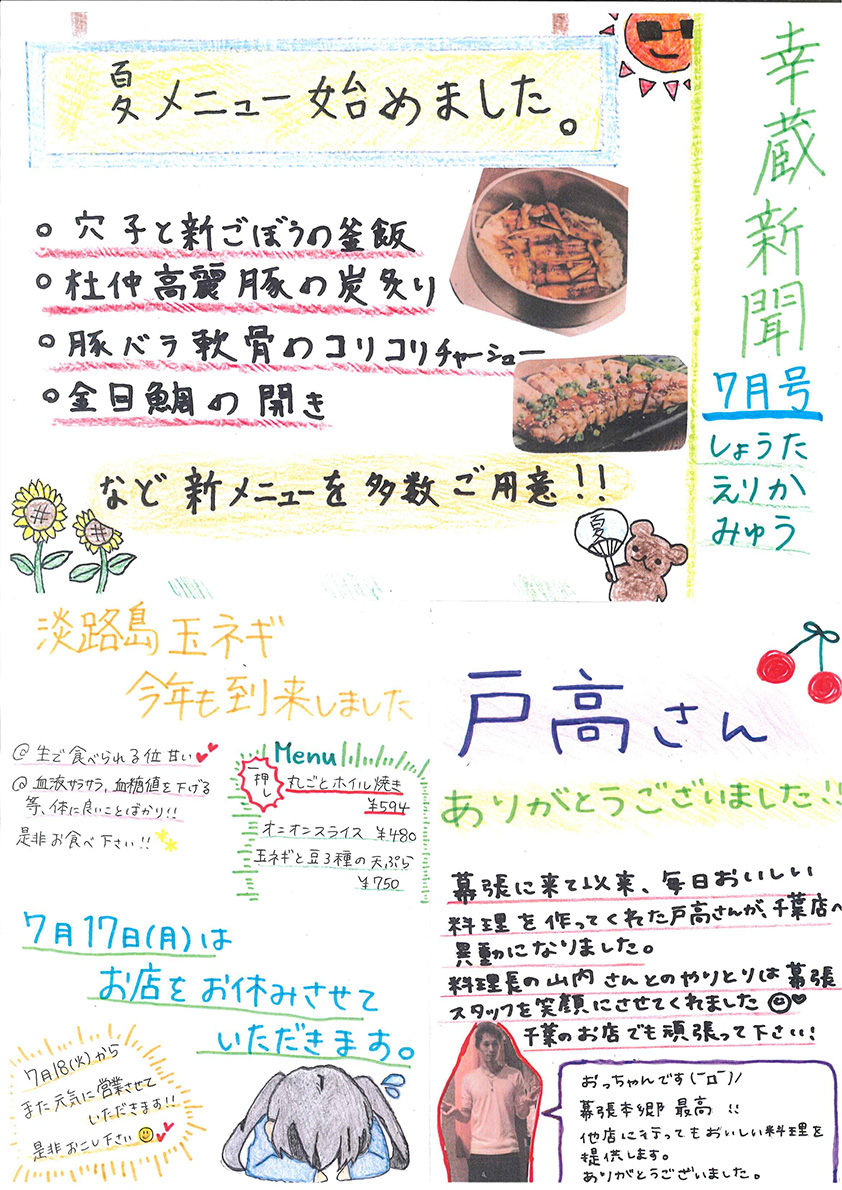 幸蔵新聞
7月号
しょうた
えりか
みゅう
夏メニュー始めました。
○ 穴子と新ごぼうの釜飯
○ 杜仲高麗豚の炭炙り
○ 豚バラ軟骨のコリコリチャーシュー
○ 金目鯛の開き
など新メニューを多数ご用意!!
夏
淡路島玉ネギ
今年も到来しました
@ 生で食べられる位甘い
@ 血液サラサラ,血糖値を下げる
等、体に良いことばかり!!
是非お食べ下さい!!
Menu
一押し
丸ごとホイル焼き
¥594
オニオンスライス ¥480
玉ネギと豆3種の天ぷら
¥750
7月17日(月)は
お店をお休みさせて
いただきます。
7月18(火)から
また元気に営業させて
いただきます!!
是非おこし下さい
戸高さん
ありがとうございました!!
幕張に来て以来、毎日おいしい
料理を作ってくれた戸高さんが、千葉店へ
異動になりました。
料理長の山内さんとのやりとりは幕張
スタッフを笑顔にさせてくれました
千葉のお店でも頑張って下さい!
おっちゃんです(ーロー)/
幕張本郷最高 !!
他店に行ってもおいしい料理を
提供します。
ありがとうございました。